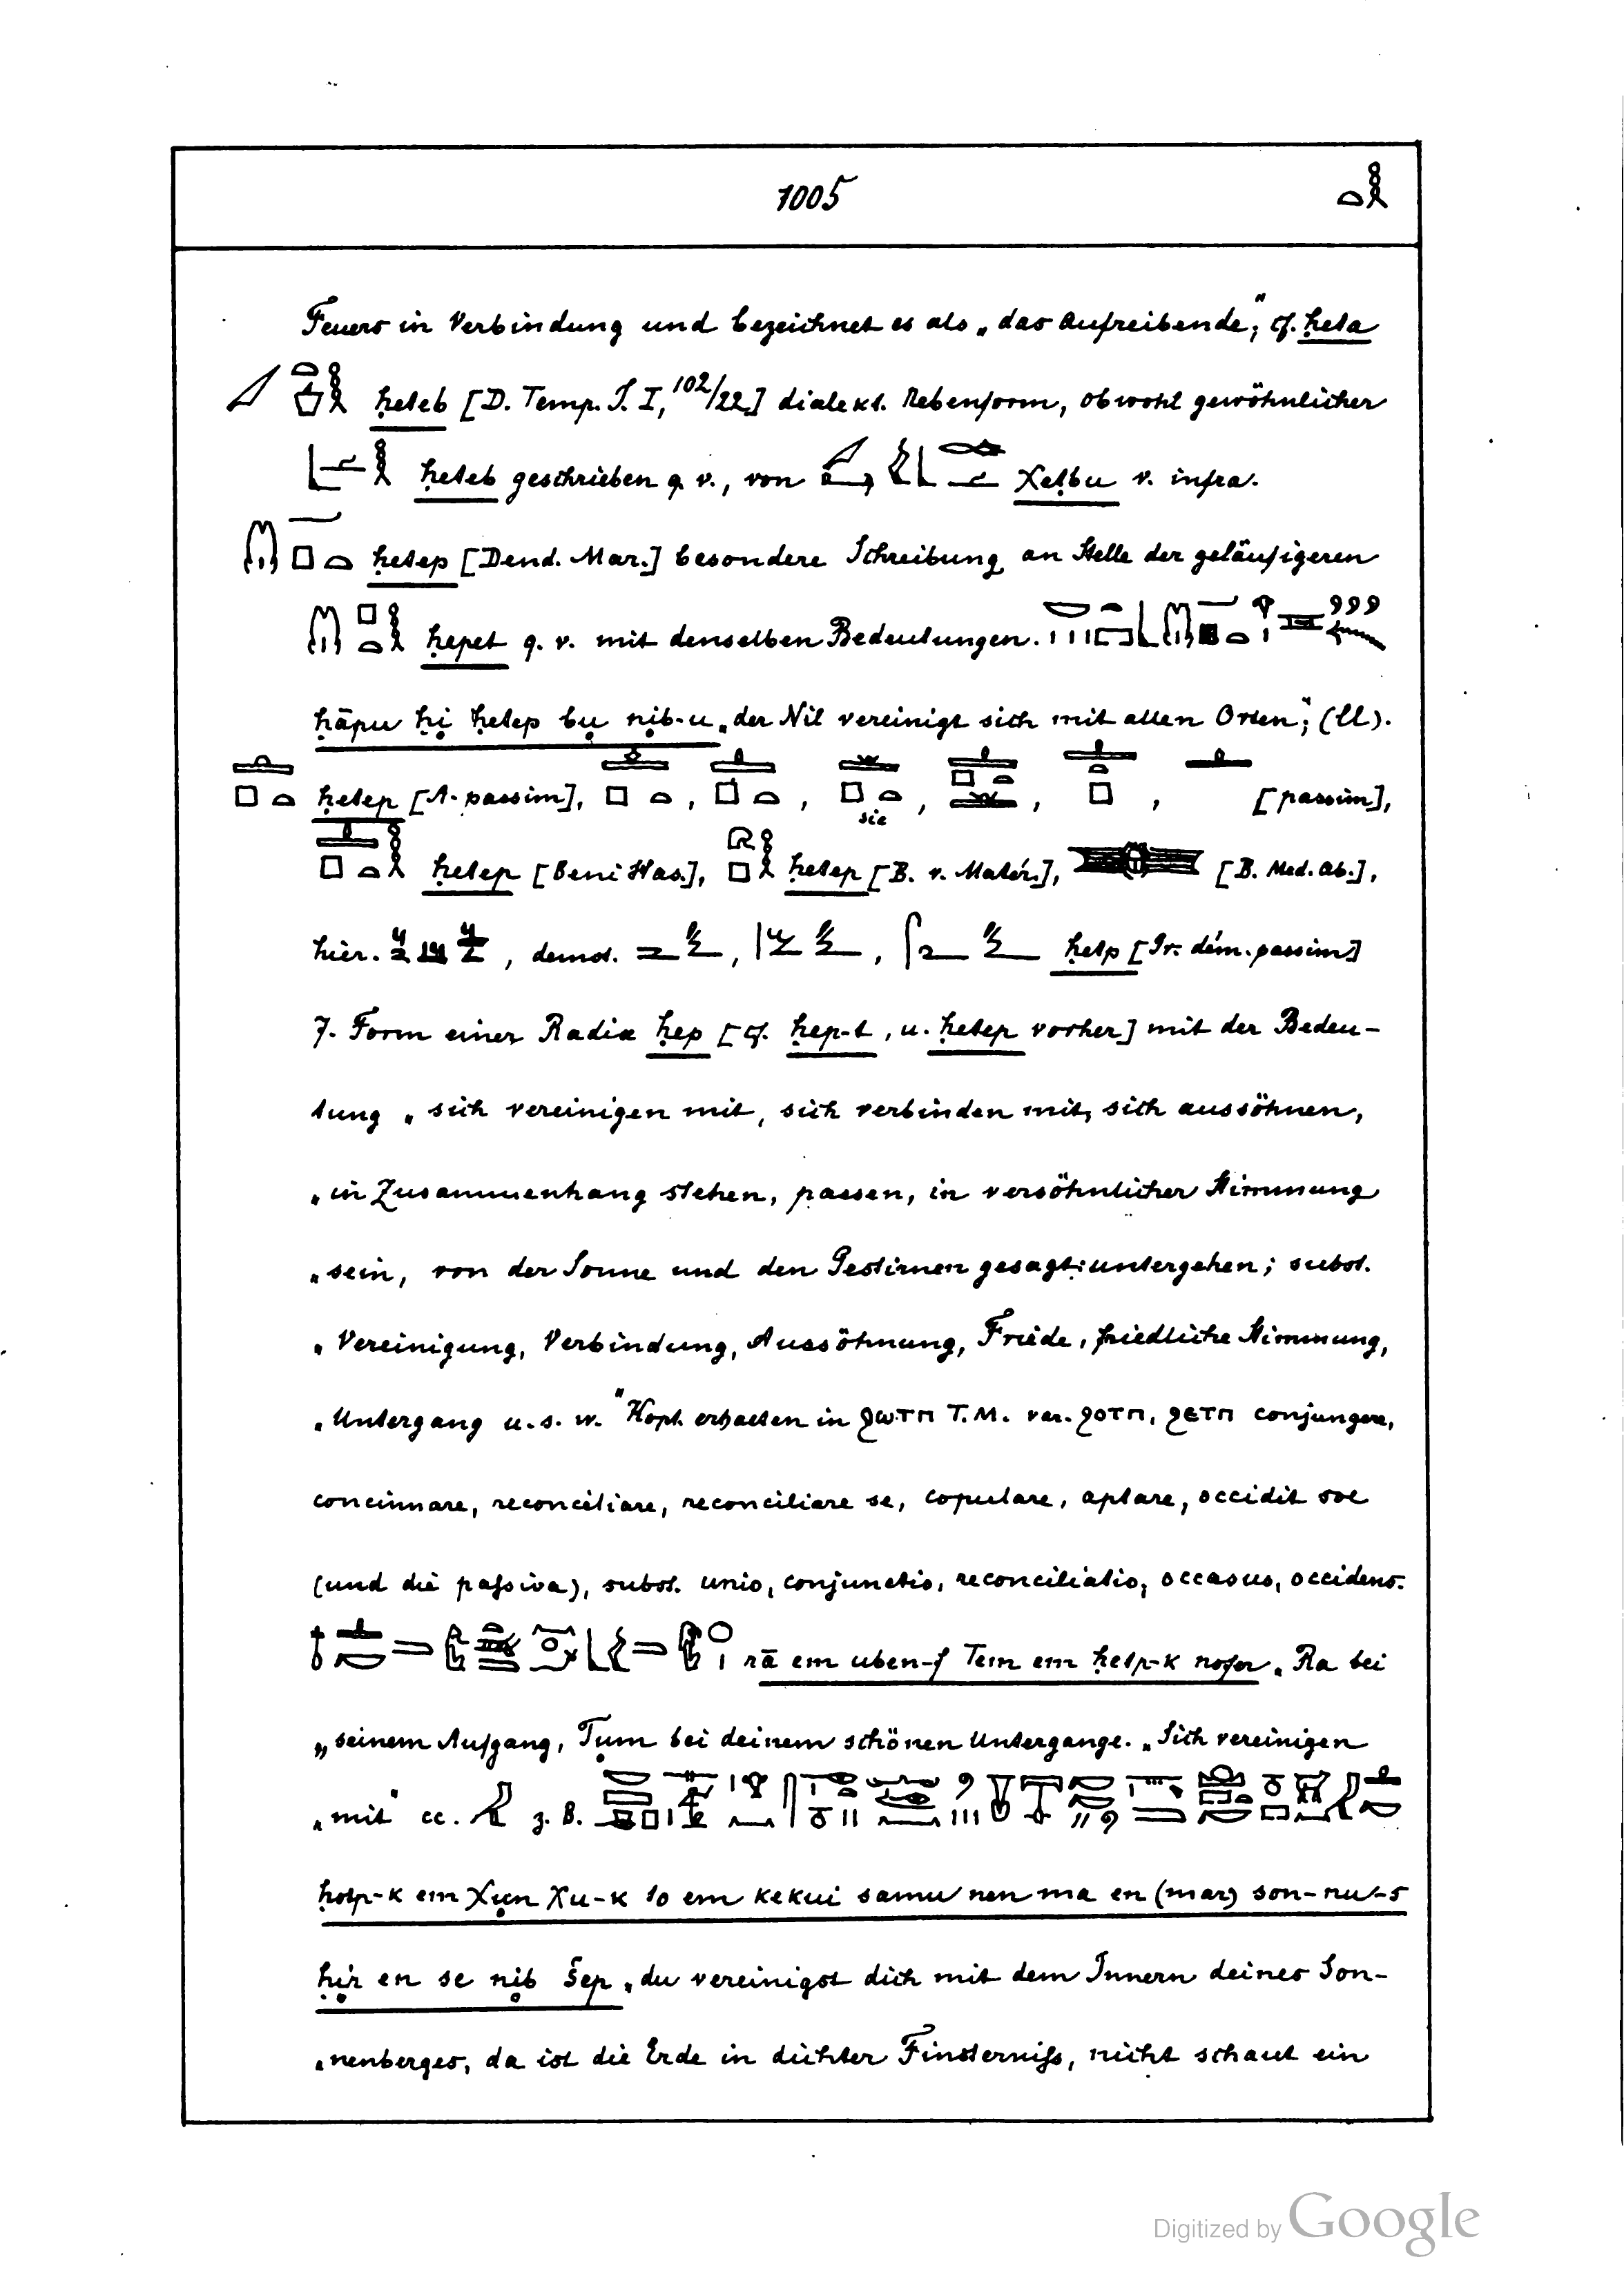 1005
Feuers in Verbindung und bezeichnet es als „das Aufreibende“, cf. ḥeta
ḥeteb [D. Temp. J. I, 102/22] dialekt. Nebenform, obwohl gewöhnlicher
ḥeteb geschrieben q. v., von Xeṭbu v. infra.
ḥetep [Dend. Mar.] besondere Schreibung an Stelle der geläufigeren
ḥepet q. v. mit denselben Bedeutungen.
ḥāpu ḥi ḥetep bu nib-u „der Nil vereinigt sich mit allen Orten“, (ll).
ḥetep [A. passim], , , , , , [passim],
sic
ḥetep [Beni Has.], ḥetep [B. v. Matér.], [B. Med. Ab.],
hier. , demot. , , ḥetp [Gr. dém. passim]
7. Form einer Radix ḥep [cf. ḥep-t, u. ḥetep vorher] mit der Bedeu-
tung „sich vereinigen mit, sich verbinden mit, sich aussöhnen,
„in Zusammenhang stehen, passen, in versöhnlicher Stimmung
„sein, von der Sonne und den Gestirnen gesagt: untergehen; subst.
„Vereinigung, Verbindung, Aussöhnung, Friede, friedliche Stimmung,
„Untergang u. s. w.“ Kopt. erhalten in ϩωτπ T. M. var. ϩοτπ, ϩετπ conjungere,
concinnare, reconciliare, reconciliare se, copulare, aptare, occidit sol
(und die passiva), subst. unio, conjunctio, reconciliatio, occasus, occidens.
rā em uben-f Tem em ḥetp-k nofer „Ra bei
„seinem Aufgang, Tum bei deinem schönen Untergange. „Sich vereinigen
„mit“ cc. z. B.
ḥotp-k em Xun Xu-k to em kekui samu nen ma en (mar) son-nu-s
ḥir en se nib šep „du vereinigst dich mit dem Innern deines Son-
„nenberges, da ist die Erde in dichter Finsterniss, nicht schaut ein
Digitized by Google